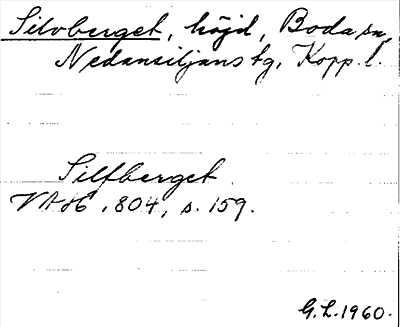 Silvberget, höjd, Boda sn,
Nedansiljans tg, Kopp. l.
Silfberget
VAH, 804, s. 159.
G.L. 1960.